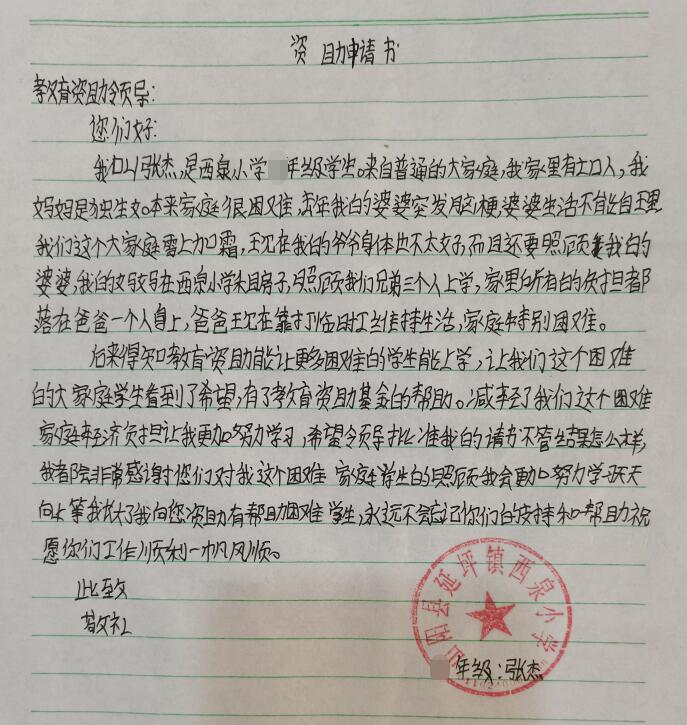 资助申请书
教育资助领导:
您们好:
我叫张杰,是西泉小学年级学生。来自普通的大家庭,我家里有七口人,我
妈妈是独生女。本来家庭很困难,去年我的婆婆突发脑梗,婆婆生活不能自理
我们这个大家庭雪上加霜,现在我的爷爷身体也不太好,而且还要照顾我的
婆婆,我的妈妈在西泉小学租房子,照顾我们兄弟三个人上学,家里所有的负担都
落在爸爸一个人身上,爸爸现在靠打临时工维持生活,家庭特别困难。
后来得知教育资助能让更多困难的学生能上学,让我们这个困难
的大家庭学生看到了希望,有了教育资助基金的帮助。减轻了我们这个困难
家庭经济负担让我更加努力学习,希望领导批准我的请书不管结果怎么样,
我都非常感谢您们对我这个困难家庭学生的照顾我会更加努力学习天天
向上等我长大了我向您资助有帮助困难学生,永远不会忘记你们的支持和帮助祝
愿你们工作顺利一帆风顺。
此致
敬礼
山阳县延坪镇西泉小学
年级:张杰